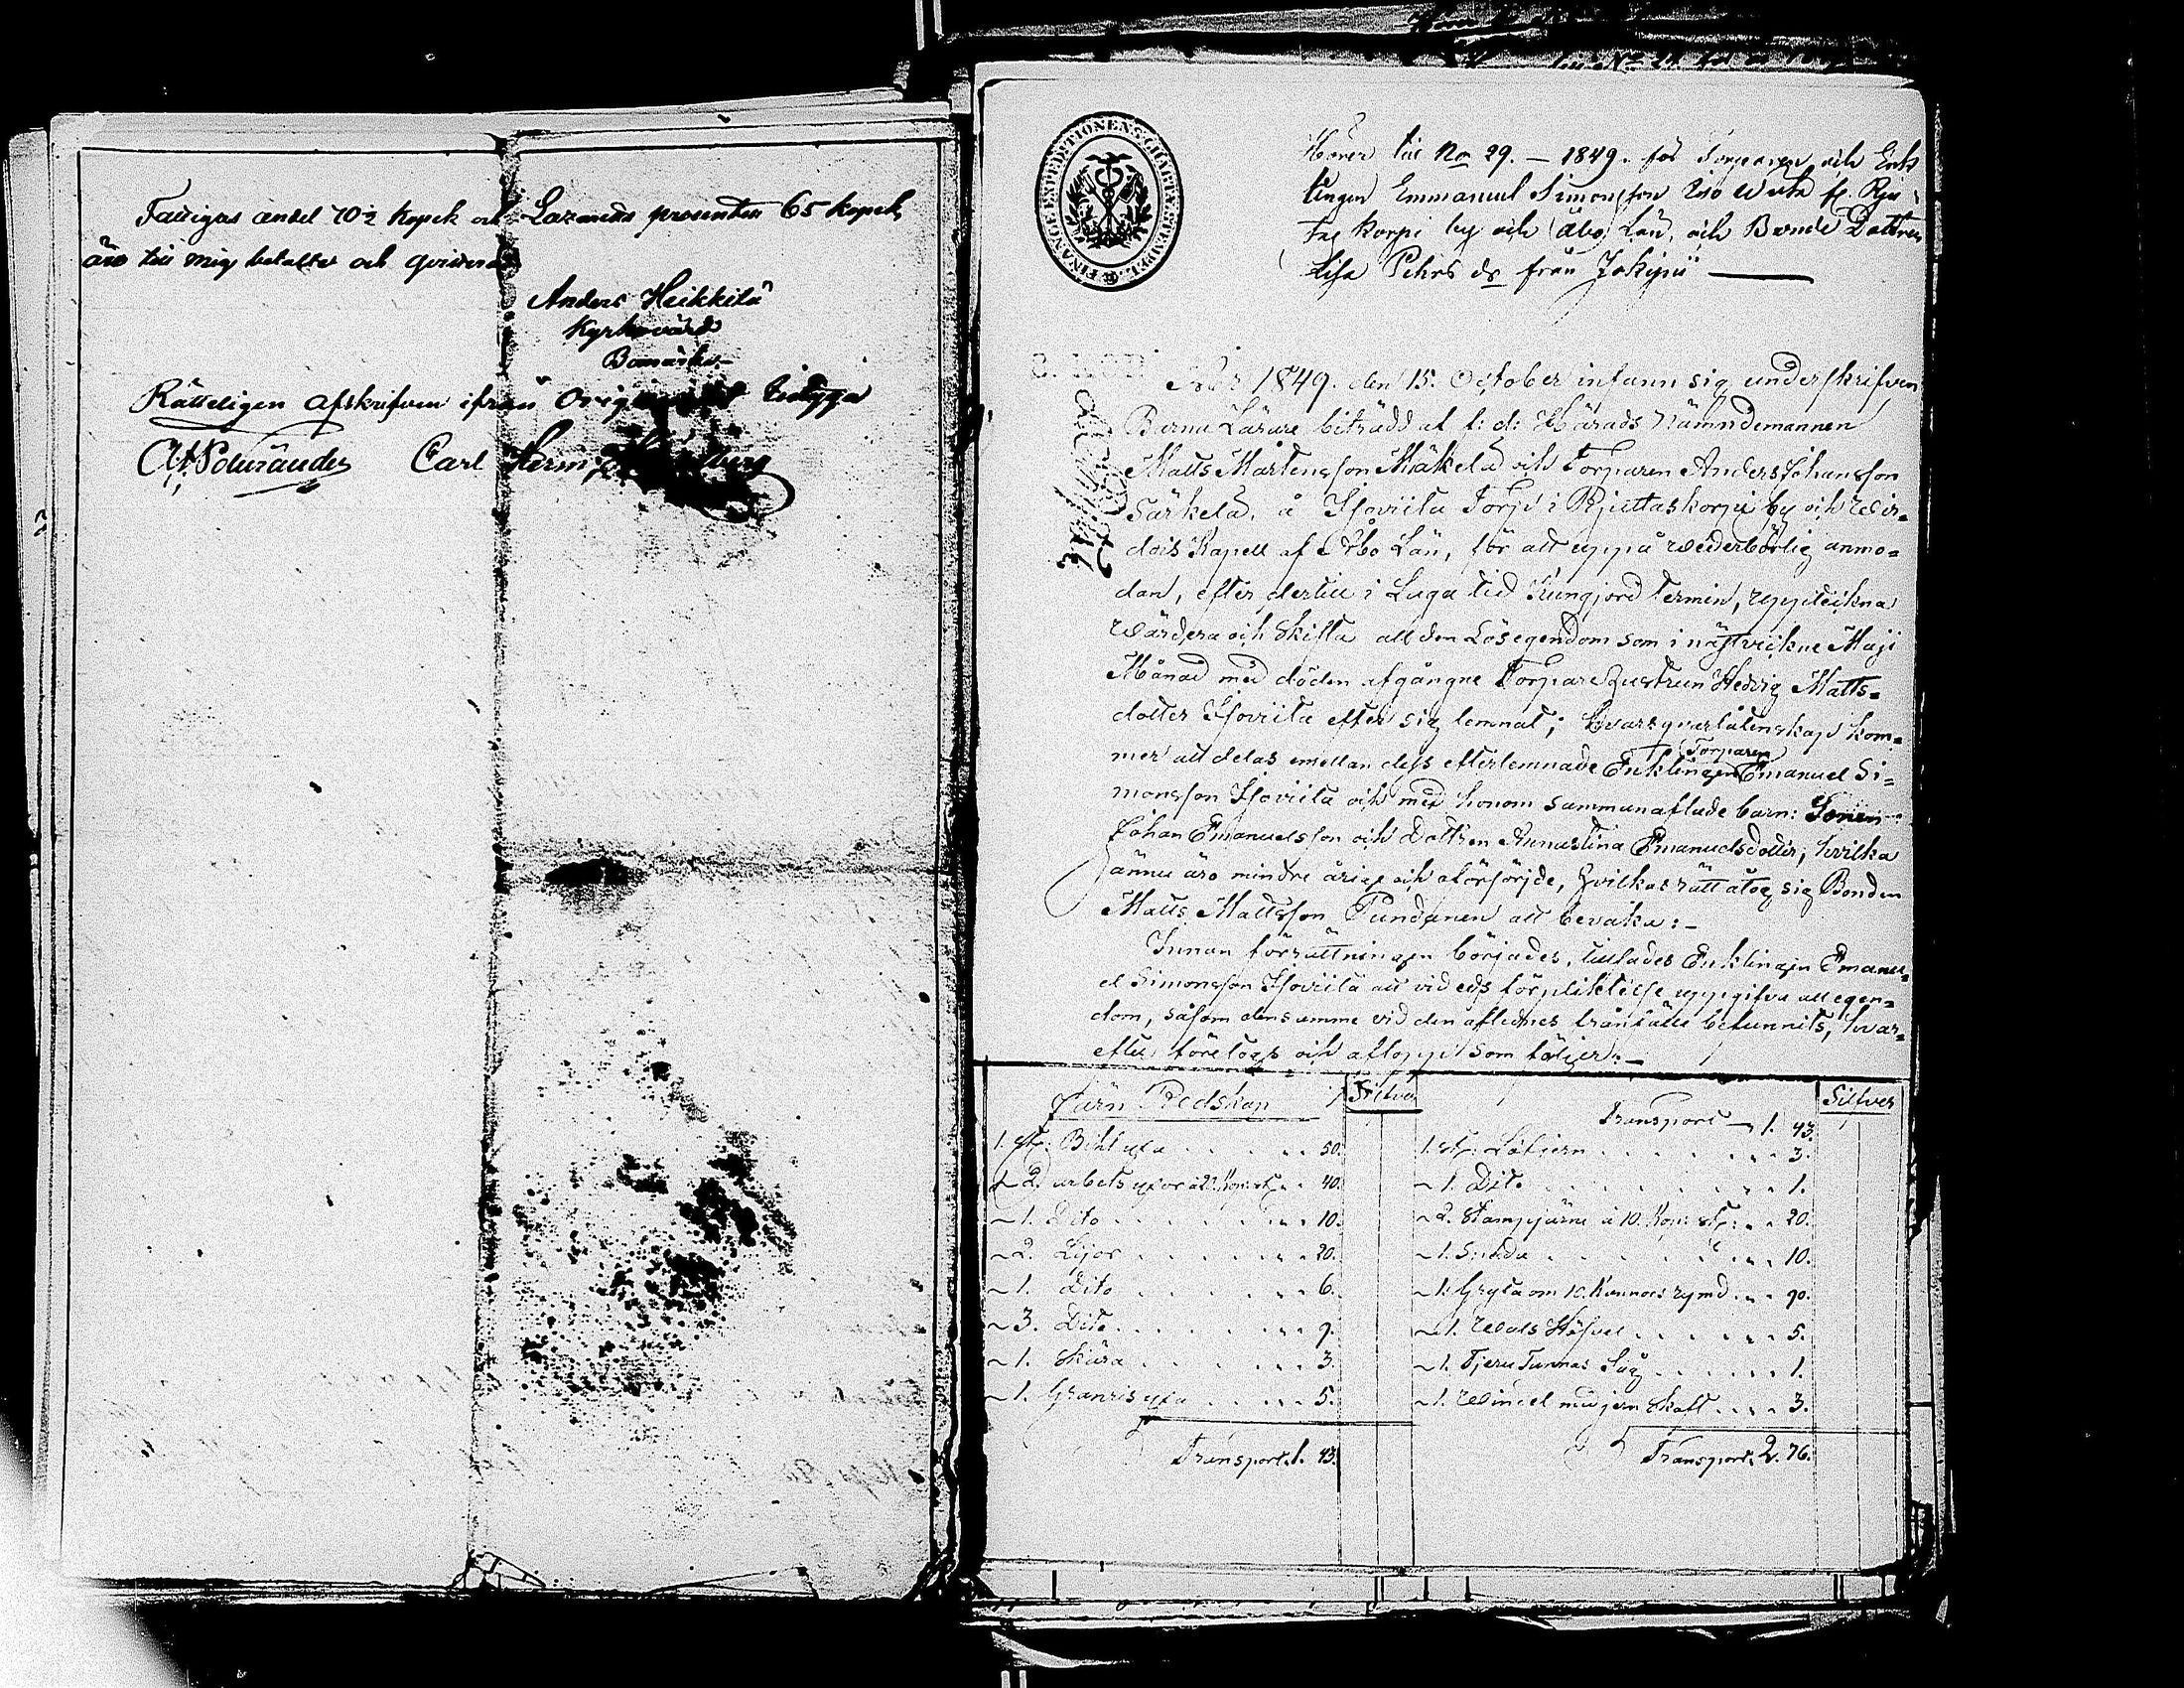 Fattigas andel 70½ kopek och Lazaretts procenten 65 kopek
äro till mig betalte och qvitteras
Anders Heikkilä
Kyrkovärd
Bomärke
Rätteligen afskrifven ifrån Originalet betyga
Carl Herm
FINANCE EXPEDITIONENS CHARTÆ STEMPEL
Hörer till No 29. — 1849. för Torparen och Enk
lingen Emmanuel Simonsson Iso wiita fr. Rju
tas korpi by och Åbo Län, och Bonde Dottren
Lisa Pehrs dr från Jokipii
År 1849. den 15. October infann sig underskrifven
Barna Lärare biträdd af f: d: Härads Nämndemannen
Matts Mårtensson Mäkelä och Torparen Anders Johansson
Särkelä, å Isoviita Torp i Rjuttaskorpi by och Wir=
dois Kapell af Åbo Län, för att uppå wederbörlig anmo=
dan, efter dertill i Laga tid kungjord termin, uppteckna
wärdera och skifta all den Lösegendom som i nästvikne Maji
Månad med döden afgångne Torpare Hustrun Hedvig Matts=
dotter Isoviita efter sig lemnat; hvars qvarlåtenskap kom=
mer att delas emellan dess efterlemnade Enklingen Torparen Emanuel Si=
monsson Isoviita och med honom sammanaflade barn: Sonen
Johan Emanuelsson och Dottren Annastina Emanuelsdotter, hvilka
ännu äro mindre årige och oförsörjde, hvilkas rätt åtog sig Bonden
Matts Mattsson Pundanen att bevaka:-
Innan förrättningen börjades, tillsades Enklingen Emanu=
el Simonsson Isoviita att vid eds förpliktelse uppgifva all egen=
dom, såsom densamme vid den aflednes frånfälle befunnits, hvar=
efter företogs och aflopp som följer:-
Järn Redskap Silfver
1. st: Bihl yxa 50.
2. arbets yxor à 20 Kop: st: 40.
1. Dito 10.
2. Lijor 20.
1. Dito 6.
3. Dito 9.
1. Skära 3.
1. Granris yxa 5.
Transport. 1. 43.
Silfver
Transport 1. 43.
1. st: Löfjern 3.
1. Dito 1.
2. Stampjärn à 10. Kop: st: 20.
1. 10.
1. Gryta om 10. Kannors rymd 90.
1. Wals Höfvel 5.
1. Tjeru Tunnas Såg 1.
1. Winkel med jern Skaft 3.
Transport. 2. 76.